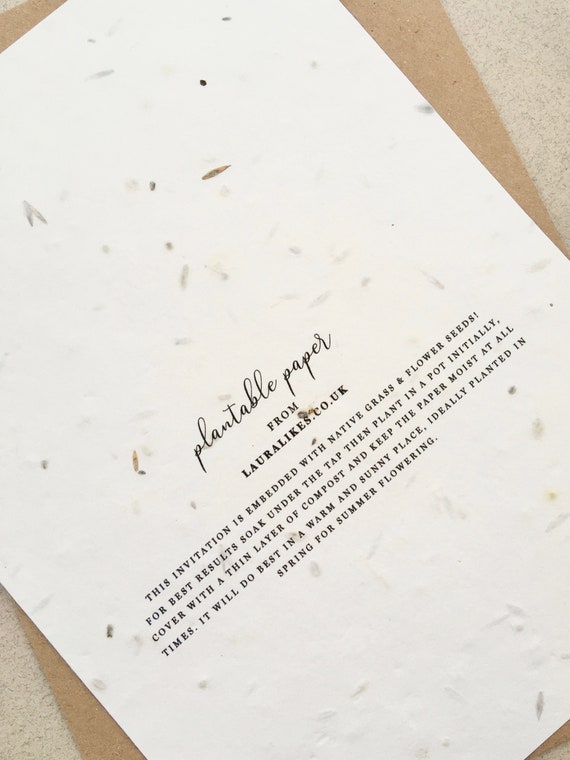 plantable paper
FROM
LAURALIKES.CO.UK
THIS INVITATION IS EMBEDDED WITH NATIVE GRASS & FLOWER SEEDS!
FOR BEST RESULTS SOAK UNDER THE TAP THEN PLANT IN A POT INITIALLY,
COVER WITH A THIN LAYER OF COMPOST AND KEEP THE PAPER MOIST AT ALL
TIMES. IT WILL DO BEST IN A WARM AND SUNNY PLACE, IDEALLY PLANTED IN
SPRING FOR SUMMER FLOWERING.